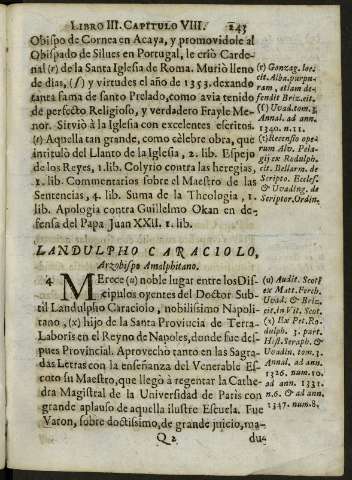 LIBRO III. CAPITULO VIII. 243
Obispo de Cornea en Acaya, y promovidole al
Obispado de Silues en Portugal, le criò Carde-
nal (r) de la Santa Iglesia de Roma. Muriò lleno
de dias, (s) y virtudes el año de 1353. dexando
tanta fama de santo Prelado, como avia tenido
de perfecto Religioso, y verdadero Frayle Me-
nor. Sirviò à la Iglesia con excelentes escritos.
(t) Aquella tan grande, como cèlebre obra, que
intitulò del Llanto de la Iglesia, 2. lib. Espejo
de los Reyes, 1. lib. Colyrio contra las heregias,
1. lib. Commentarios sobre el Maestro de las
Sentencias, 4. lib. Suma de la Theologia, 1.
lib. Apologia contra Guillelmo Okan en de-
fensa del Papa Juan XXII. 1. lib.
(r) Gonzag. loc.
cit. Alba. purpu-
ram, etiam de-
fendit Briz. cit.
(s) Uvad. tom. 3.
Annal. ad ann.
1340. n. 11.
(t) Recensio ope-
rum Alv. Pela-
gij ex Rodulph.
cit. Bellarm. de
Scripto. Eccles.
& Uvading. de
Scriptor. Ordin.
LANDULPHO CARACIOLO,
Arzobispo Amalphitano.
4. Merece (u) noble lugar entre los Dis-
cipulos oyentes del Doctor Sub-
til Landulpho Caraciolo, nobilissimo Napoli-
tano, (x) hijo de la Santa Provincia de Terra-
Laboris en el Reyno de Napoles, donde fue des-
pues Provincial. Aprovechò tanto en las Sagra-
das Letras con la enseñanza del Venerable Es-
coto su Maestro, que llegò à regentar la Cathe-
dra Magistral de la Universidad de Paris con
grande aplauso de aquella ilustre Escuela. Fue
Varon, sobre doctissimo, de grande juicio, ma-
(u) Audit. Scoti
ex Matt. Ferch.
Uvad. & Briz.
cit. in Vit. Scot.
(x) Ex Pet. Ro-
dulph. 3. part.
Hist. Seraph. &
Uvadin. tom. 3.
Annal. ad ann.
1326. num. 10.
ad ann. 1331.
n. 6. & ad ann.
1347. num. 8.
Q 2 du-